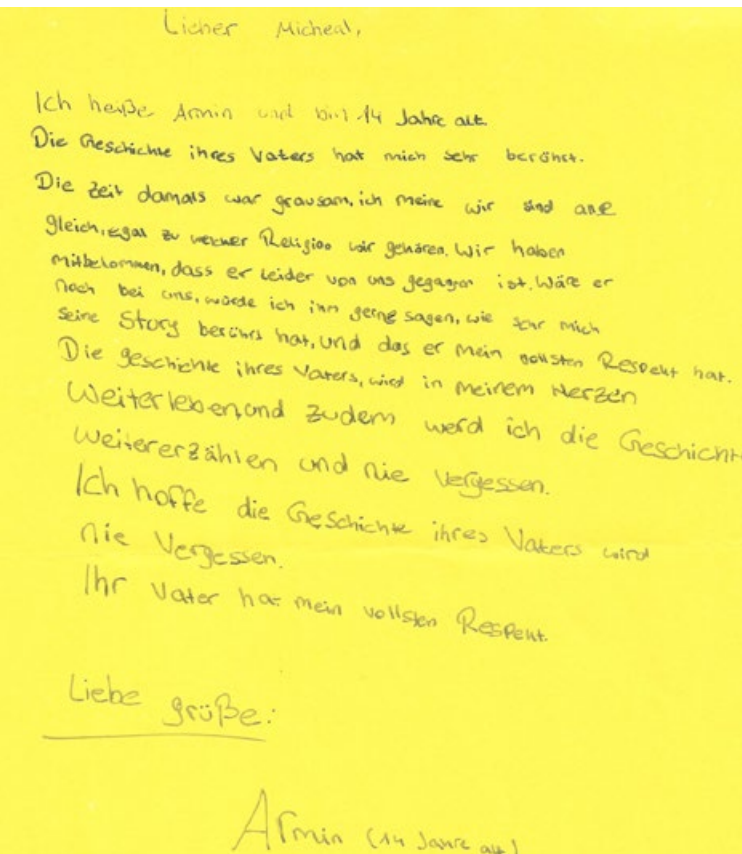 Lieber Micheal,
Ich heiße Armin und bin 14 Jahre alt.
Die Geschichte ihres Vaters hat mich sehr berührt.
Die Zeit damals war grausam, ich meine wir sind alle
gleich, egal zu welcher Religion wir gehören. Wir haben
mitbekommen, dass er leider von uns gegagen ist. Wäre er
noch bei uns, würde ich ihm gerne sagen, wie sehr mich
seine Story berührt hat, und das er mein vollsten Respekt hat.
Die geschichte ihres Vaters, wird in meinem Herzen
Weiterleben, und zudem werd ich die Geschichte
weitererzählen und nie vergessen.
Ich hoffe die Geschichte ihres Vaters wird
nie Vergessen.
Ihr Vater hat mein vollsten Respekt.
Liebe grüße:
Armin (14 Jahre alt)